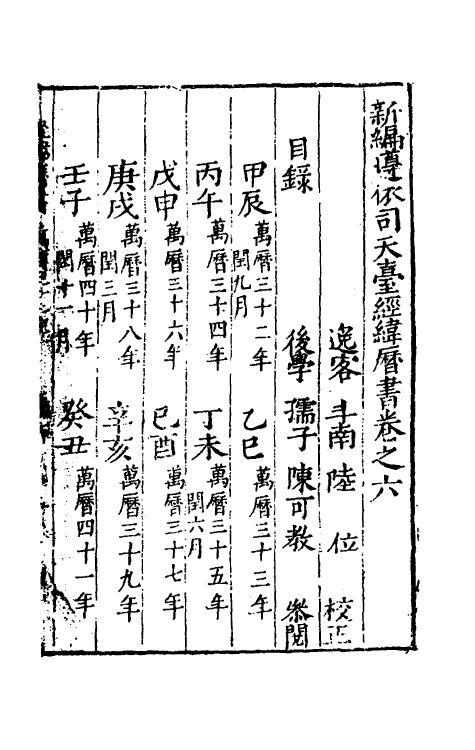 新編遵依司天臺經緯曆書卷之六
逸客斗南陸位校正
後學孺子陳可教叅閱
目錄
甲辰萬曆三十二年閏九月
乙巳萬曆三十三年
丙午萬曆三十四年
丁未萬曆三十五年閏六月
戊申萬曆三十六年
己酉萬曆三十七年
庚戌萬曆三十八年閏三月
辛亥萬曆三十九年
壬子萬曆四十年閏十一月
癸丑萬曆四十一年